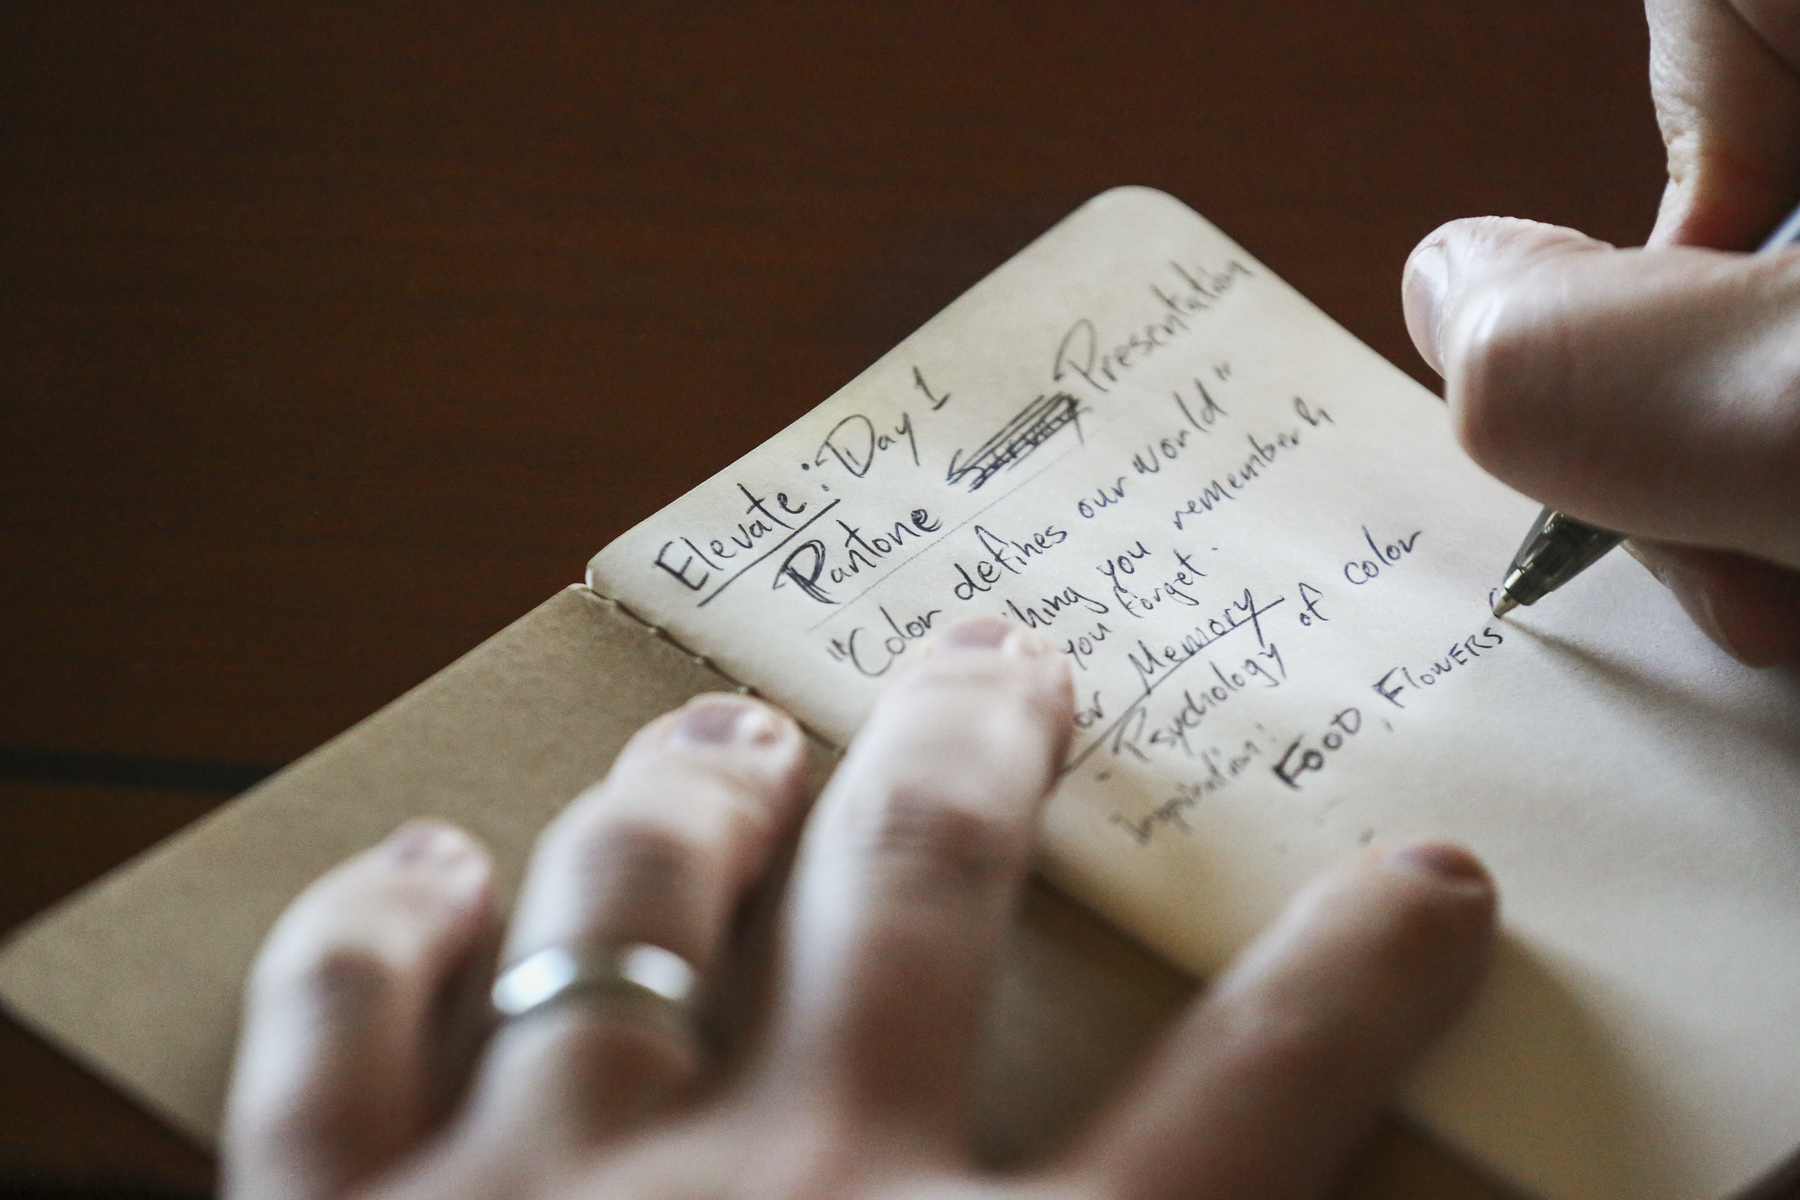 Elevate: Day 1
Pantone Presentation
"Color defines our world"
you remember &
you forget.
Memory
- Psychology of color
Inspiration:
FOOD, FLOWERS